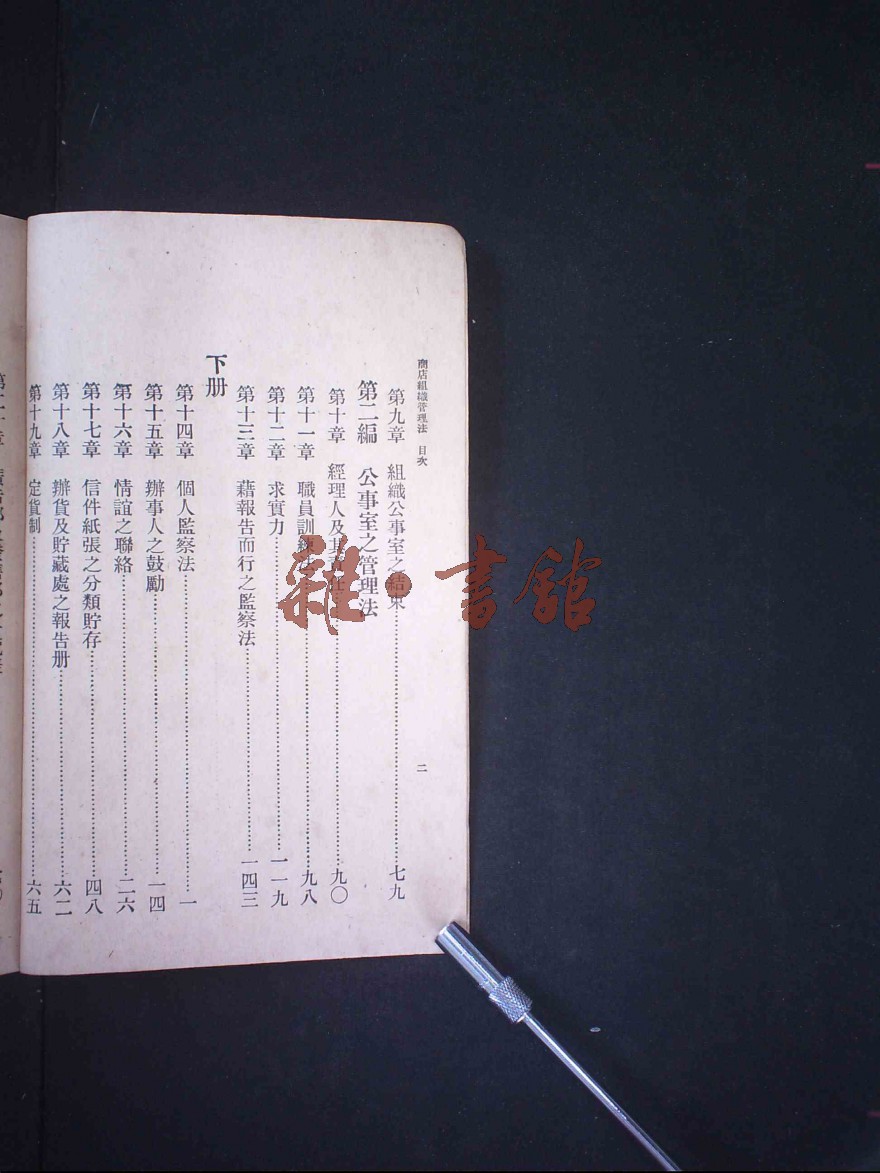 商店組織管理法 目次
二
第九章 組織公事室之結束……七九
第二編 公事室之管理法
第十章 經理人及其責任……九〇
第十一章 職員訓練法……九八
第十二章 求實力……一一九
第十三章 藉報告而行之監察法……一四三
下册
第十四章 個人監察法……一
第十五章 辦事人之鼓勵……一四
第十六章 情誼之聯絡……二六
第十七章 信件紙張之分類貯存……四八
第十八章 辦貨及貯藏處之報告册……六二
第十九章 定貨制……六五
雜·書舘